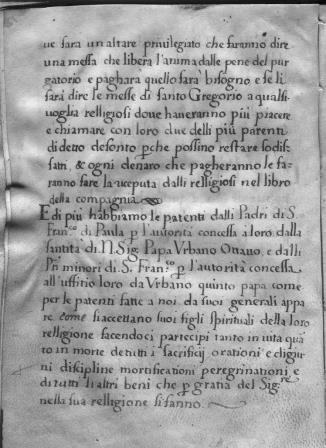 ue sara un altare priuilegiato che faranno dire
una messa che libera l'anima dalle pene del pur
gatorio e paghara quello sara bisogno e se li
fara dire le messe di santo Gregorio a qualsi
uoglia relligiosi doue haueranno più piacere
e chiamare con loro due delli più parenti
di detto defonto p che possino restare sodis
fatti, & ogni denaro che pagheranno le fa-
ranno fare la riceputa dalli relligiosi nel libro
della compagnia
E di più habbiamo le patenti dalli Padri di S.
Fran.co di Paula p l'autorità concessa a loro dalla
santità di N. Sig. Papa Vrbano Ottauo, e dalli
Pri minori di S. Fran.co p l'autorità concessa
all'uffitio loro da Vrbano quinto papa come
per le patenti fatte a noi da suoi generali appa
re come si accettano suoi figli spirituali della loro
relligione facendoci partecipi tanto in uita quā
to in morte de tutti i sacrificij orationi e digiu
ni discipline mortificationi peregrinationi e
di tutti li altri beni che p gratia del Sig.re
nella sua relligione si fanno.